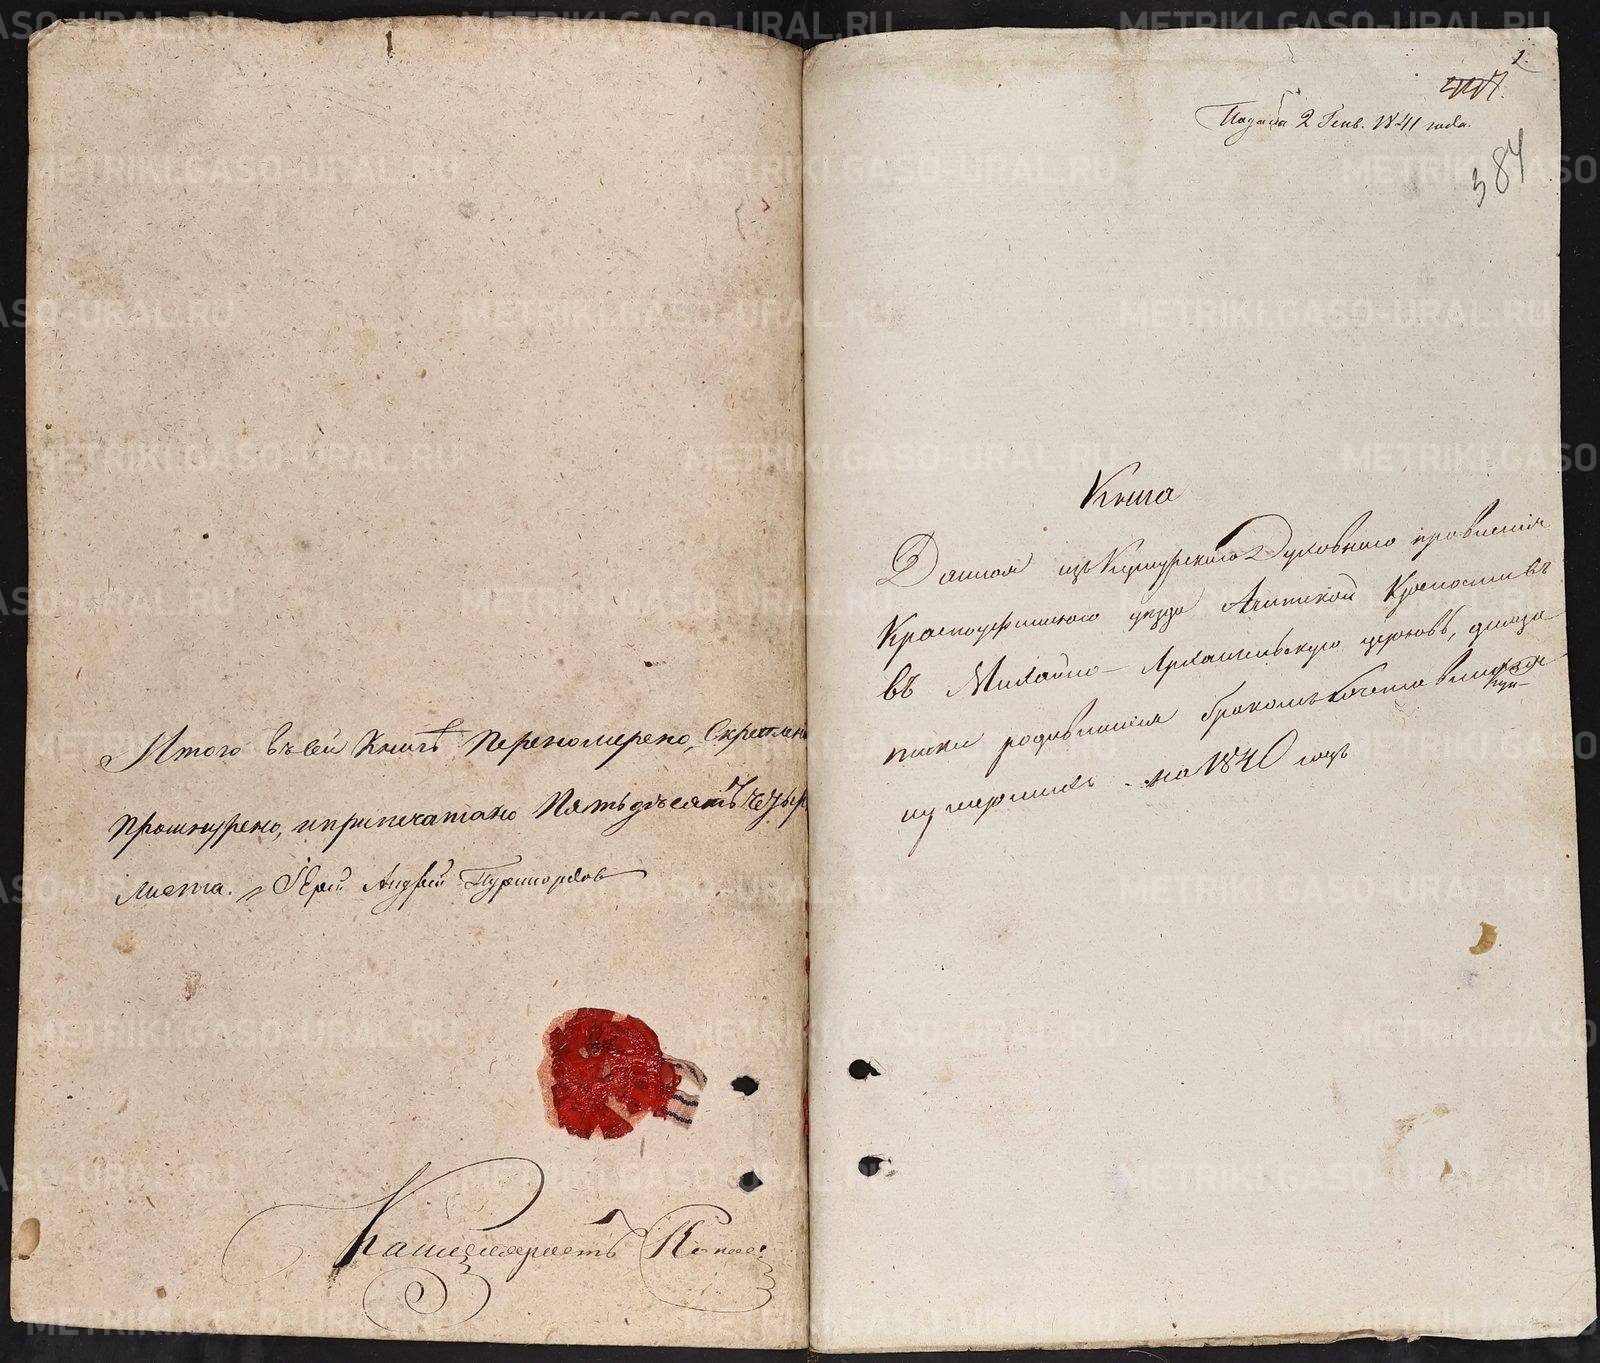 Итого въ сей Книгѣ перенумерено, скреплено
прошнурено, и припечатано Пятьдесятъ четыр
листа. Іерей Андрей
Канцеляристъ
1.
447.
Подана 2 Генв. 1841 года.
384
Книга
Данная изъ Кунгурскаго Духовнаго правленія
Красноуфимскаго уѣзда Ачитской Крепости въ
въ Михайло-Архангельскую церковь, для за
писки родившихся бракомъ сочетавшихся
и умершихъ на 1840 годъ
METRIKI.GASO-URAL.RU